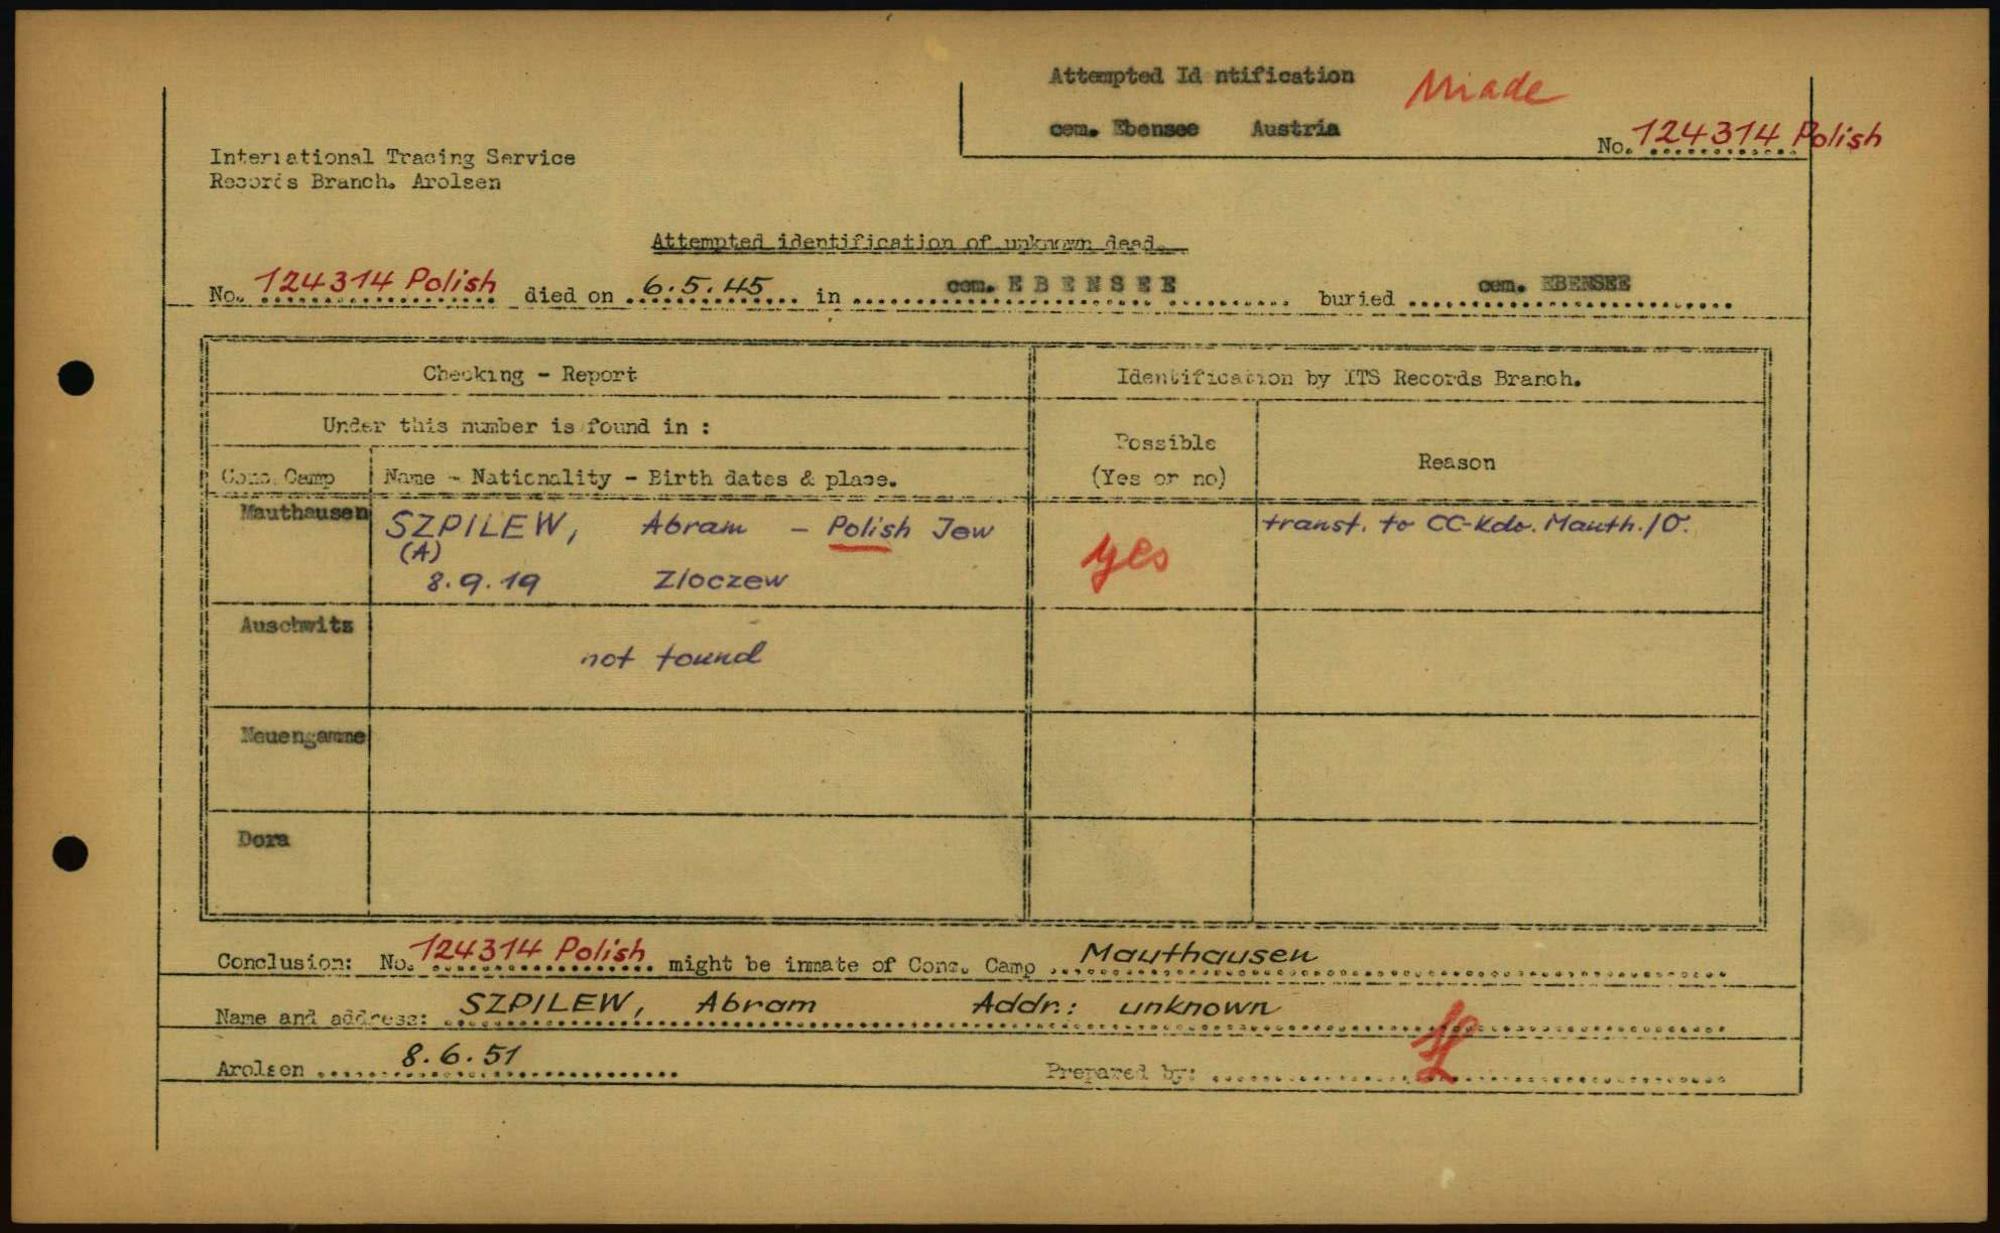 Attempted Id ntification
Made
cem. Ebensee Austria
No. 124314 Polish
International Tracing Service
Records Branch. Arolsen
Attempted identification of unknown dead.
No. 124314 Polish died on 6.5.45 in cem. EBENSEE buried cem. EBENSEE
Checking - Report
Identification by ITS Records Branch.
Under this number is found in :
Possible
(Yes or no)
Reason
Conc. Camp
Name - Nationality - Birth dates & place.
Mauthausen
SZPILEW, Abram - Polish Jew
(A)
8.9.19 Zloczew
yes
transf. to CC-Kdo. Mauth./O.
Auschwitz
not found
Neuengamme
Dora
Conclusion: No. 124314 Polish might be inmate of Conc. Camp Mauthausen
Name and address: SZPILEW, Abram Addr.: unknown
Arolsen 8.6.51
Prepared by: